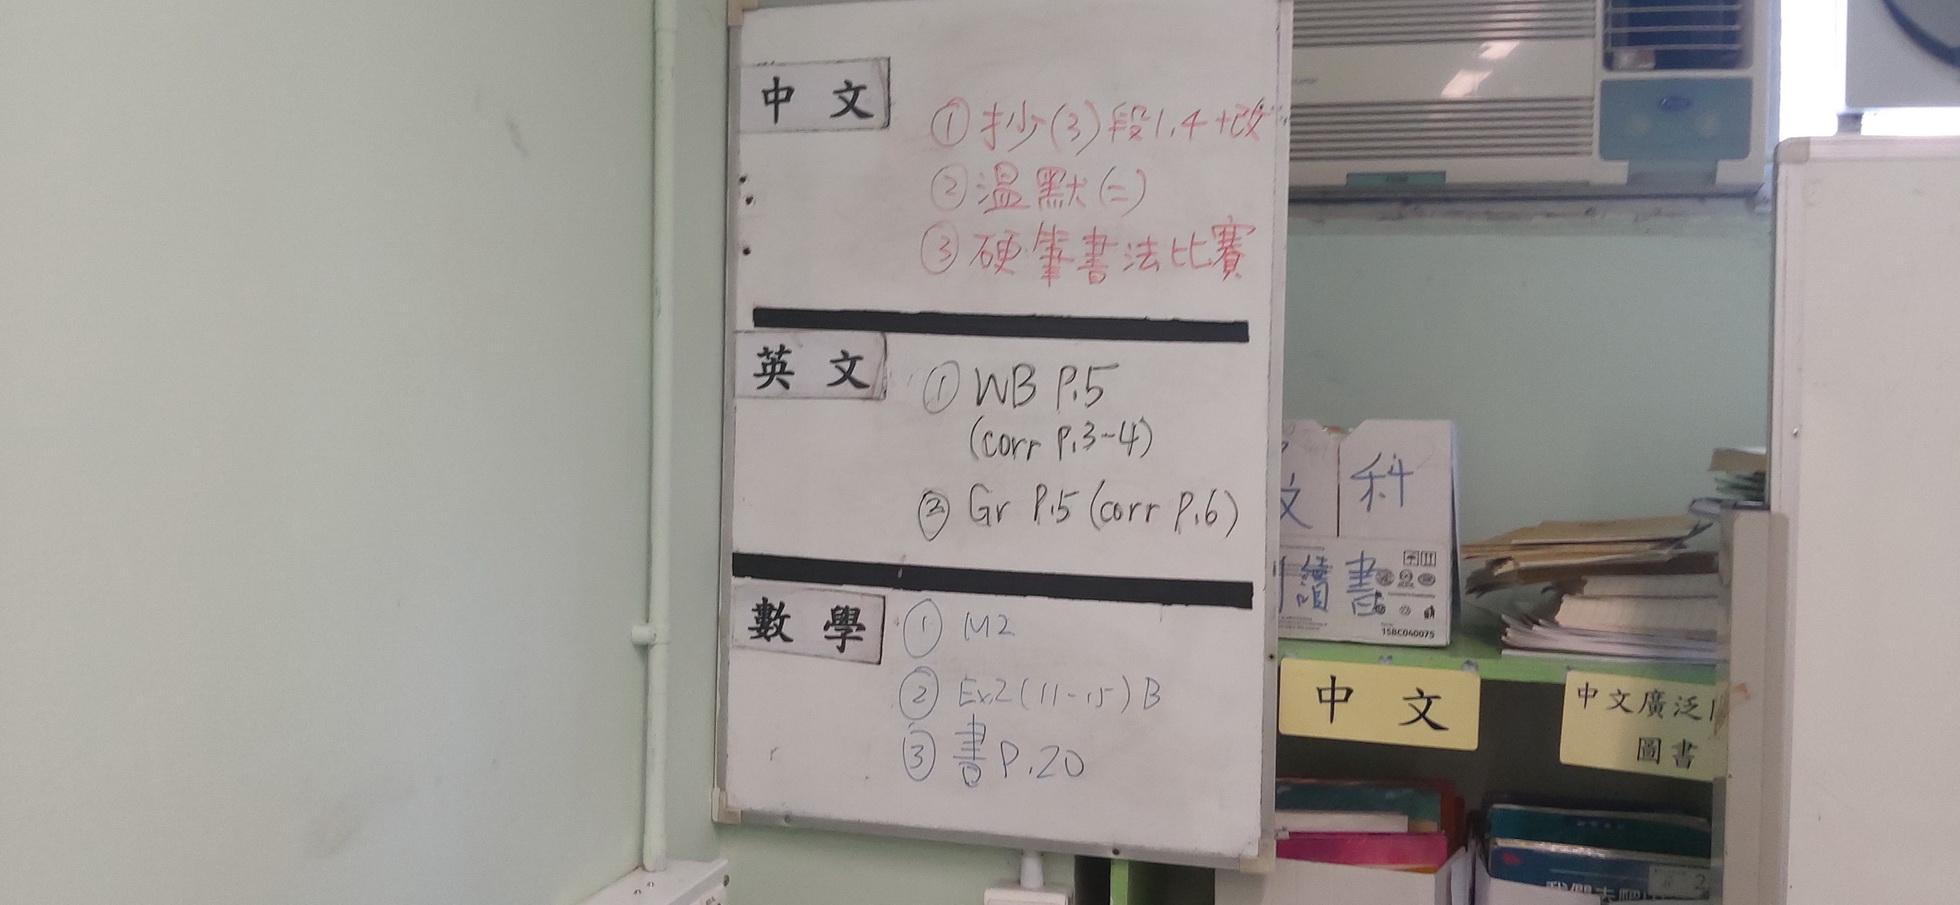 中文
①抄(3)段1,4+改
②溫默(二)
③硬筆書法比賽
英文
① WB P.5
(corr P.3-4)
② Gr P.5 (corr P.6)
數學
① M2
② Ex2 (11-15) B
③ 書 P.20
文科
讀書
158C040075
中文
中文廣泛
圖書